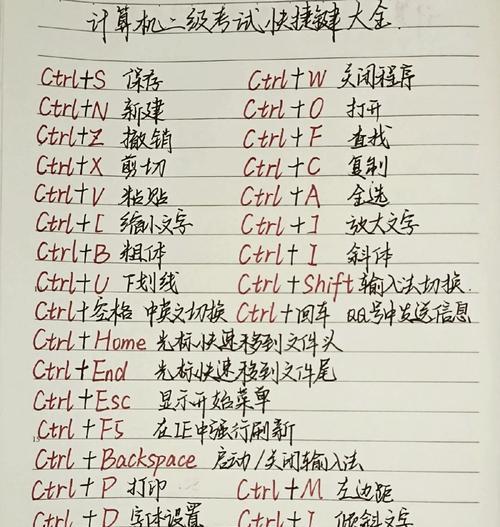 计算机二级考试快捷键大全
Ctrl+S 保存 Ctrl+W 关闭程序
Ctrl+N 新建 Ctrl+O 打开
Ctrl+Z 撤销 Ctrl+F 查找
Ctrl+X 剪切 Ctrl+C 复制
Ctrl+V 粘贴 Ctrl+A 全选
Ctrl+[ 缩小文字 Ctrl+] 放大文字
Ctrl+B 粗体 Ctrl+I 斜体
Ctrl+U 下划线 Ctrl+Shift 输入法切换.
Ctrl+空格 中英文切换 Ctrl+回车 QQ号中发送信息
Ctrl+Home 光标快速移到文件头
Ctrl+End 光标快速移到文件尾
Ctrl+Esc 显示开始菜单
Ctrl+F5 在IE中强行刷新
Ctrl+Backspace 启动/关闭输入法
Ctrl+P 打印 Ctrl+M 左边距
Ctrl+D 字体设置 Ctrl+I 倾斜文字